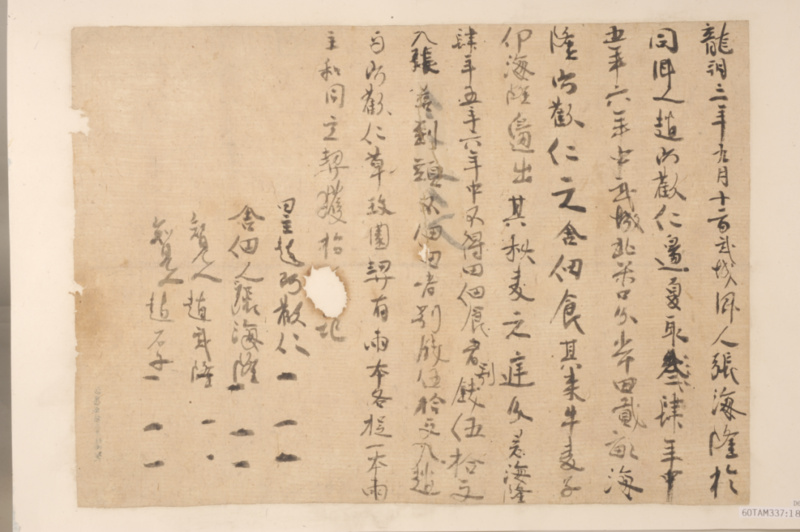 龍朔三年九月十二日武城鄉人張海隆於
同鄉人趙阿歡仁邊夏取叁肆年中
五年六年中武城北渠口分常田貳畝海
隆阿歡仁二人舍佃食其耒牛麥子
仰海隆邊出其秋麥二人庭分若海隆
肆年五年六年中不得田佃食者別錢伍拾文
入張若到頭不佃田者別錢伍拾文入趙
与阿歡仁草玖圍契有兩本各捉一本兩
主和同立契獲指 記
田主趙阿歡仁
舍佃人張海隆
知見人趙武隆
知見人趙石子
60TAM337:18